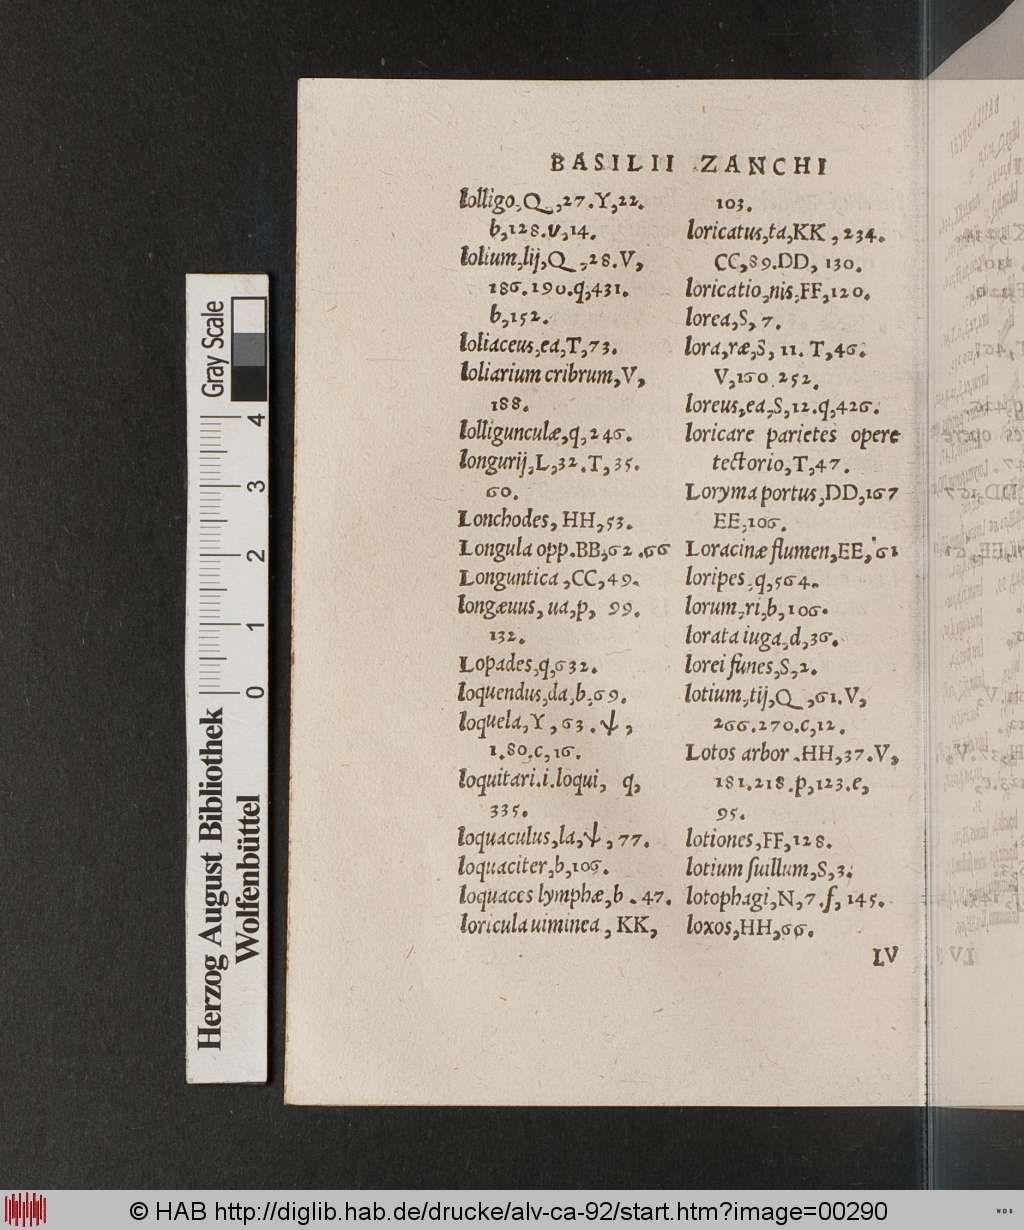 BASILII ZANCHI
lolligo, Q, 27. Y, 22.
b, 128. v, 14.
lolium, lij, Q, 28. V,
186. 190. q, 431.
b, 152.
loliaceus, ea, T, 73.
loliarium cribrum, V,
188.
lolligunculæ, q, 246.
longurij, L, 32. T, 35.
60.
Lonchodes, HH, 53.
Longula opp. BB, 62. 66
Longuntica, CC, 49.
longæuus, ua, p, 99.
132.
Lopades, q, 632.
loquendus, da, b, 69.
loquela, Y, 63. ↓,
1. 80. c, 16.
loquitari. i. loqui, q,
335.
loquaculus, la, ↓, 77.
loquaciter, b, 106.
loquaces lymphæ, b. 47.
loricula uiminea, KK,
103.
loricatus, ta, KK, 234.
CC, 89. DD, 130.
loricatio, nis, FF, 120.
lorea, S, 7.
lora, ræ, S, 11. T, 46.
V, 160. 252.
loreus, ea, S, 12. q, 426.
loricare parietes opere
tectorio, T, 47.
Loryma portus, DD, 167
EE, 106.
Loracinæ flumen, EE, 61
loripes, q, 564.
lorum, ri, b, 106.
lorata iuga, d, 36.
lorei funes, S, 2.
lotium, tij, Q, 61. V,
266. 270. c, 12.
Lotos arbor. HH, 37. V,
181. 218. p, 123. e,
95.
lotiones, FF, 128.
lotium suillum, S, 3.
lotophagi, N, 7. f, 145.
loxos, HH, 66.
LV
Gray Scale
4
3
2
1
0
Herzog August Bibliothek
Wolfenbüttel
© HAB http://diglib.hab.de/drucke/alv-ca-92/start.htm?image=00290